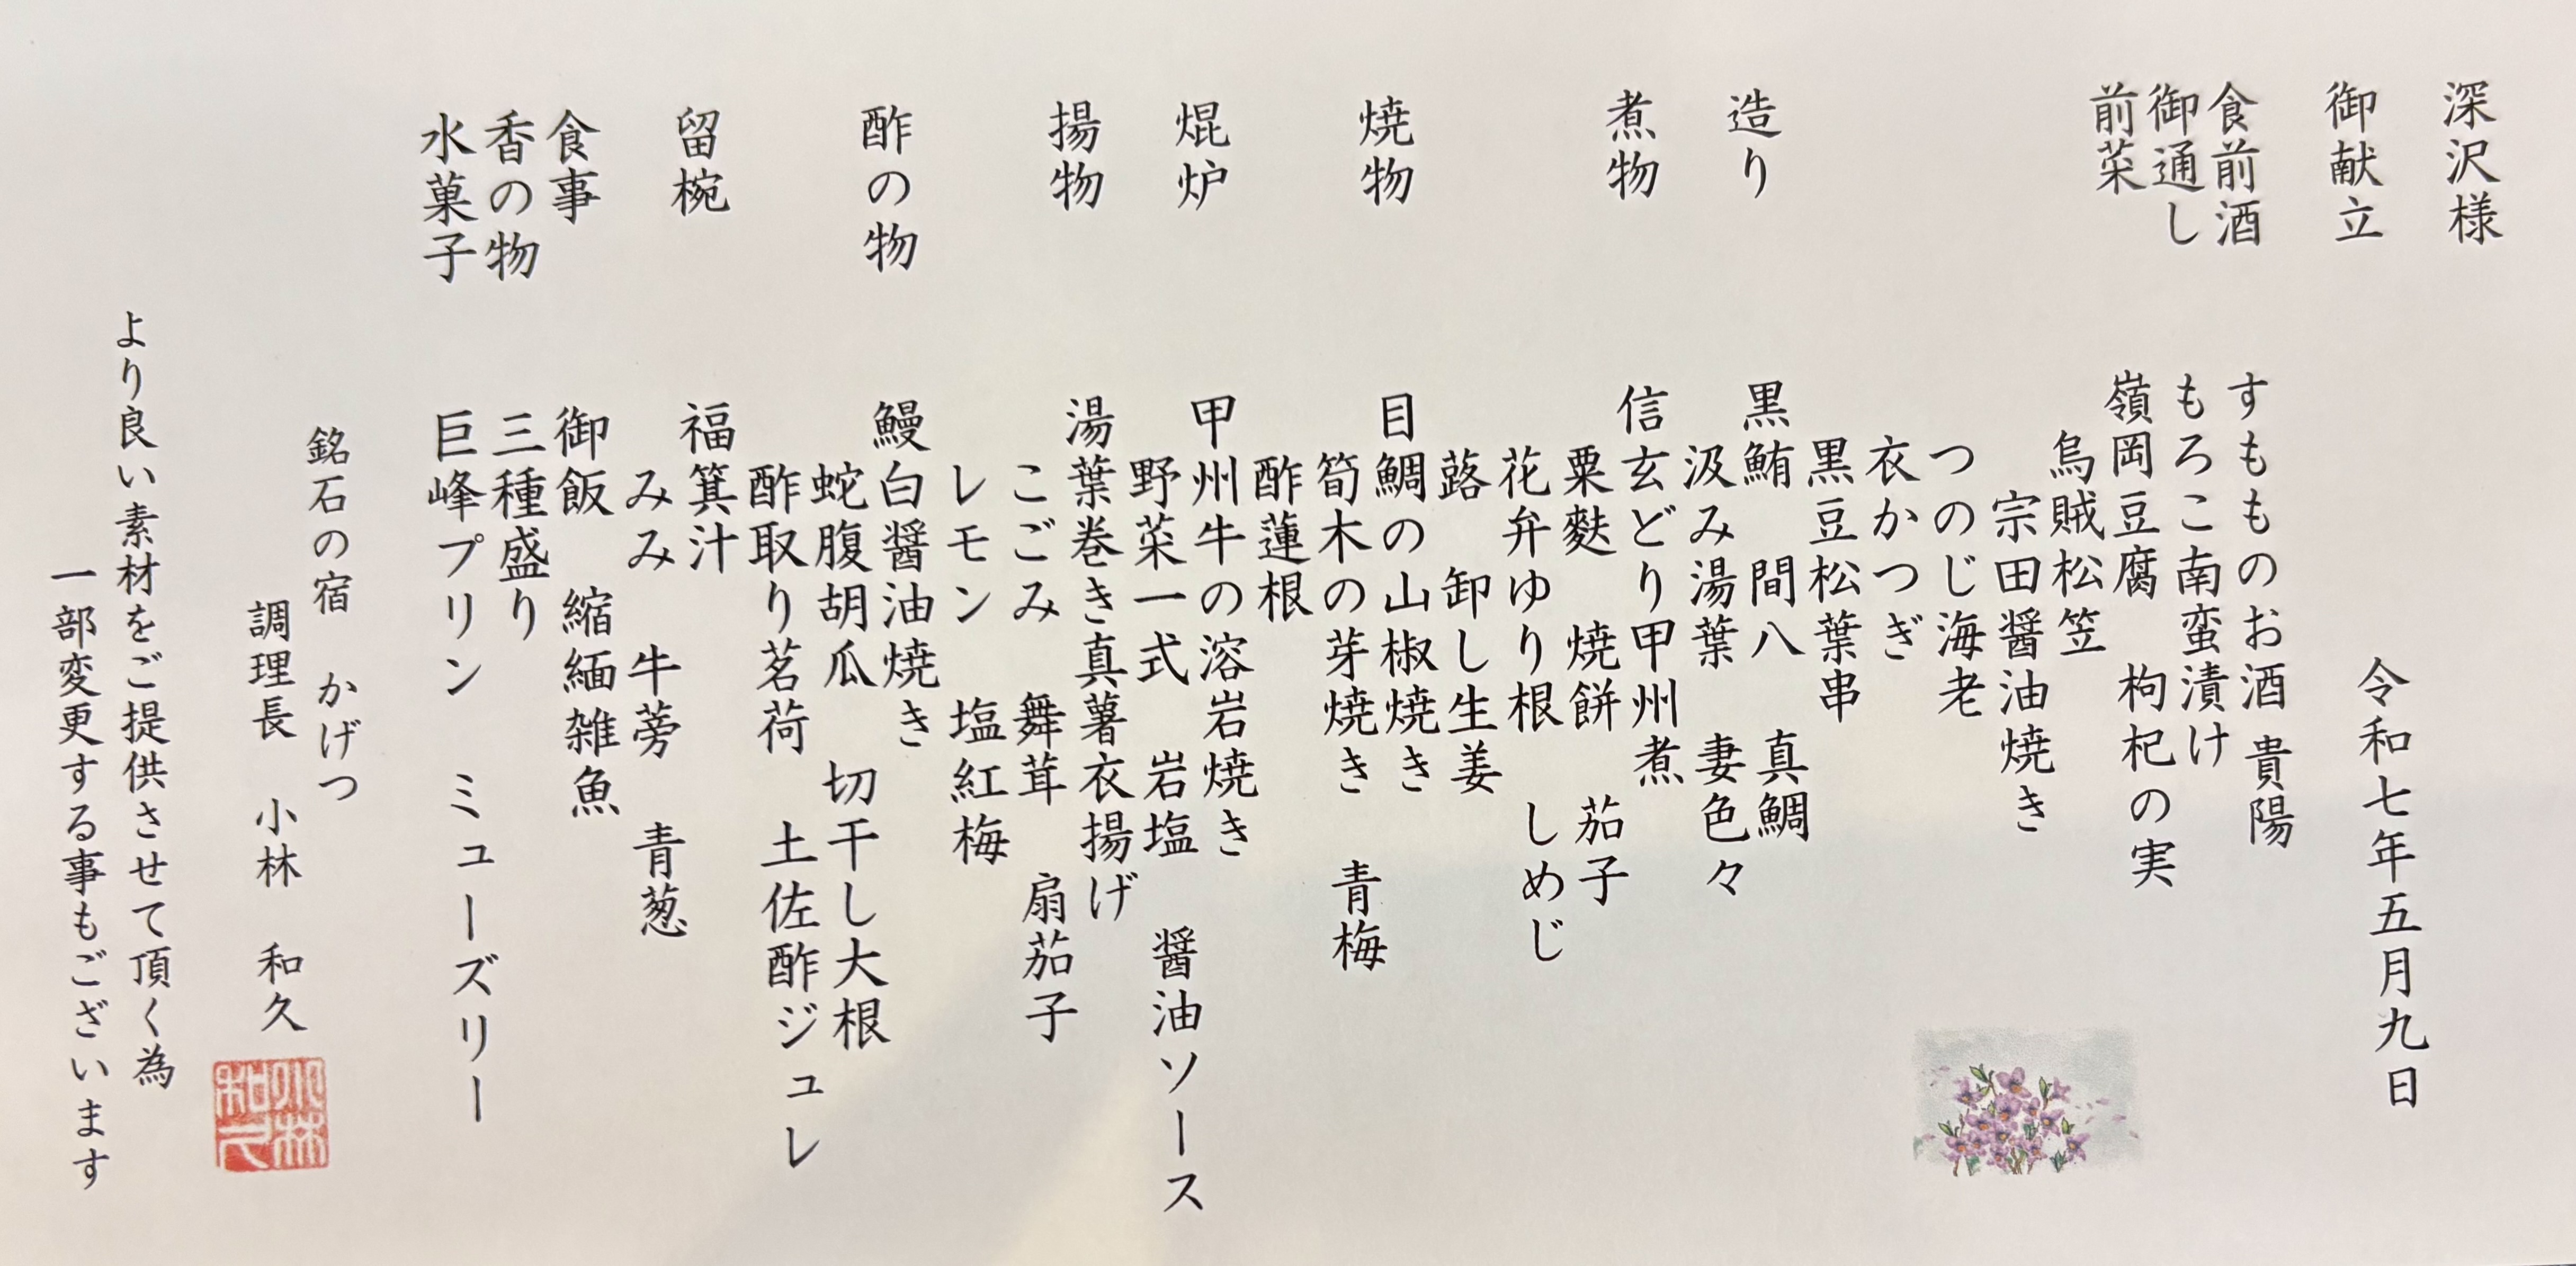 深沢様
御献立
令和七年五月九日
食前酒 すもものお酒 貴陽
御通し もろこ南蛮漬け
前菜 嶺岡豆腐 枸杞の実
烏賊松笠
宗田醤油焼き
つのじ海老
衣かつぎ
黒豆松葉串
造り 黒鮪 間八 真鯛
汲み湯葉 妻色々
煮物 信玄どり甲州煮
粟麩 焼餅 茄子
花弁ゆり根 しめじ
蕗 卸し生姜
焼物 目鯛の山椒焼き
筍木の芽焼き 青梅
酢蓮根
焜炉 甲州牛の溶岩焼き
野菜一式 岩塩 醤油ソース
揚物 湯葉巻き真薯衣揚げ
こごみ 舞茸 扇茄子
レモン 塩紅梅
酢の物 鰻白醤油焼き
蛇腹胡瓜 切干し大根
酢取り茗荷 土佐酢ジュレ
留椀 福箕汁
みみ 牛蒡 青葱
食事 御飯 縮緬雑魚
香の物 三種盛り
水菓子 巨峰プリン ミューズリー
銘石の宿 かげつ
調理長 小林 和久
小林和久
より良い素材をご提供させて頂く為
一部変更する事もございます